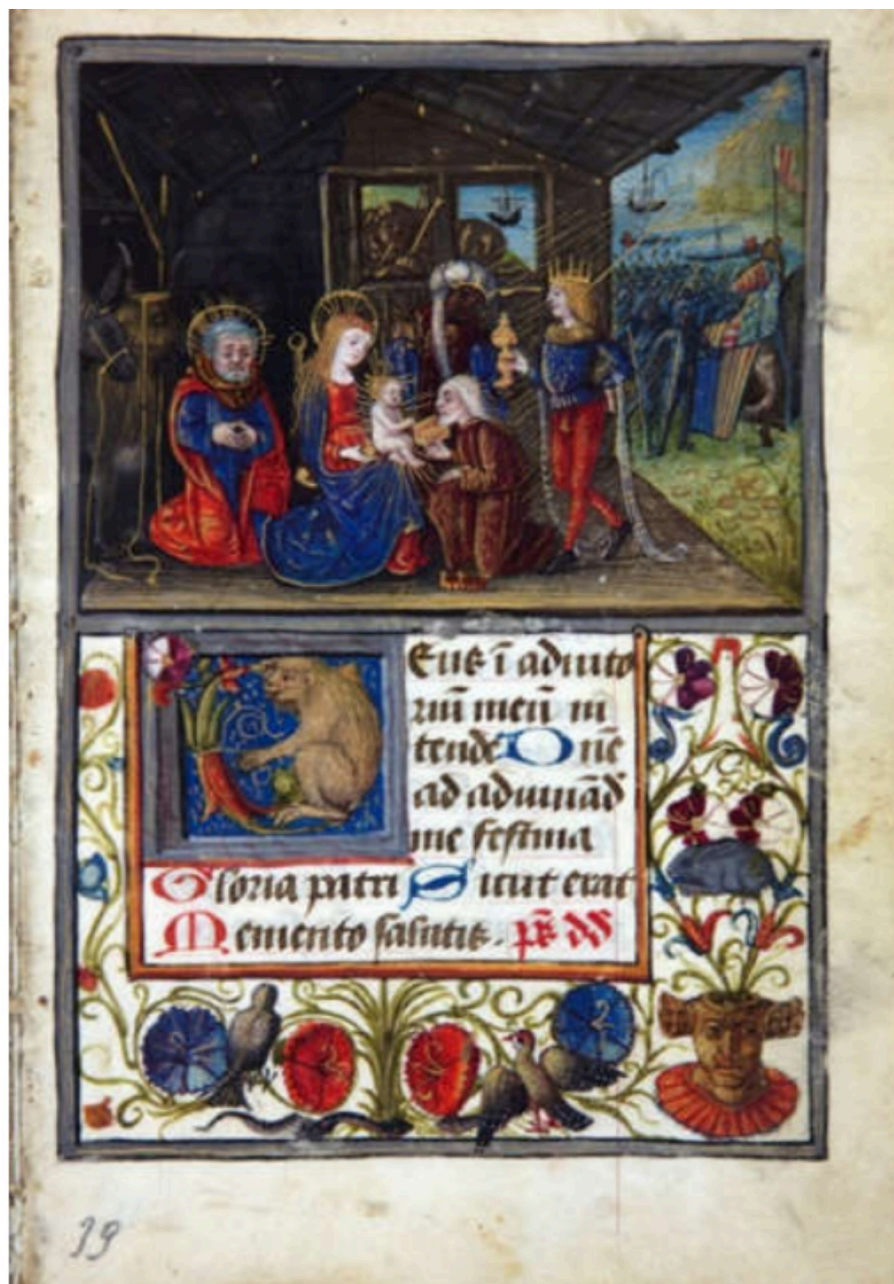 Eus ī adiuto
riū meū in
tende Dn̄e
ad adiuuād̄
me festina
Gloria patri Sicut erat
Memento salutis. ps̄ dd̄
39